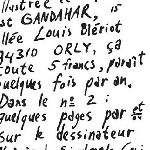 llustrée le
est GANDAHAR, 15
llée Louis Blériot
94310 ORLY, ça
coute 5 francs, paraît
quelques fois par an.
Dans le nº 2 :
quelques pages par et
sur le dessinateur